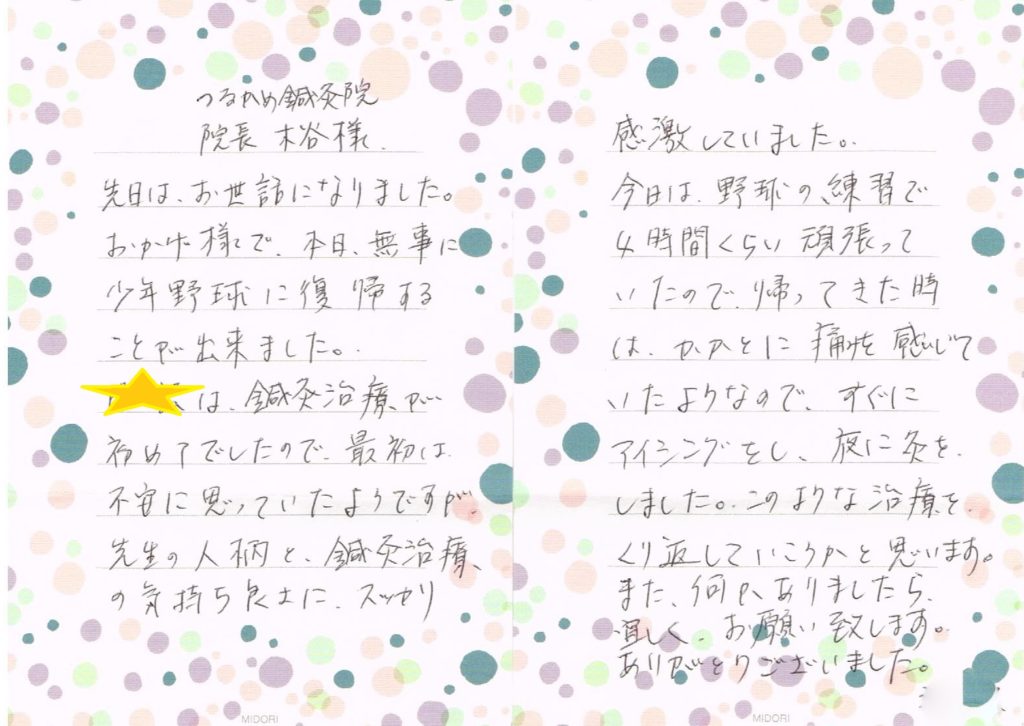 つるかめ鍼灸院
院長 木谷様.
先日は、お世話になりました。
おかげ様で、本日、無事に
少年野球に復帰する
ことが出来ました。
は、鍼灸治療が
初めてでしたので、最初は
不安に思っていたようですが、
先生の人柄と、鍼灸治療
の気持ち良さに、スッカリ
MIDORI
感激していました。
今日は、野球の練習で
4時間くらい頑張って
いたので、帰ってきた時
は、かかとに痛みを感じて
いたようなので、すぐに
アイシングをし、夜に灸を
しました。このような治療を
くり返していこうかと思います。
また、何か、ありましたら、
宜しく、お願い致します。
ありがとうございました。
MIDORI